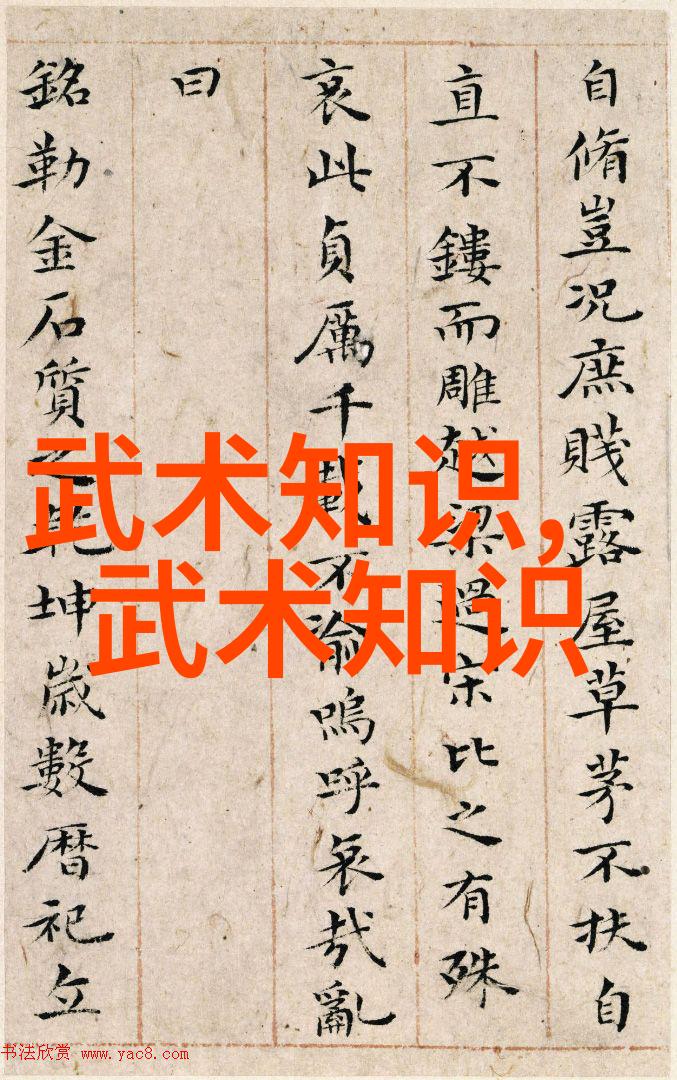 自脩豈况庶賤露屋草茅不扶自
直不鏤而雕越梁過宋比之有殊
哀此貞厲千載不渝嗚呼哀哉亂
曰
銘勒金石質之乾坤歲數曆祀立
武术知识,
武术知识
书法欣赏 www.yac8.com